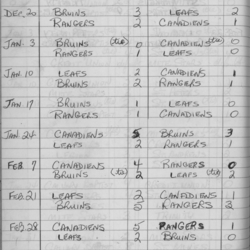 DEC. 20 BRUINS 3 LEAFS 2
RANGERS 2 CANADIENS 1
JAN. 3 BRUINS (tie) 0 CANADIEN (tie) 0
RANGERS 1 LEAFS 0
JAN 10 LEAFS 2 CANADIENS 1
BRUINS 2 RANGERS 1
JAN 17 BRUINS 1 LEAFS 0
RANGERS 2 CANADIENS 1
JAN 24 CANADIENS 5 BRUINS 3
LEAFS 2 RANGERS 1
FEB. 7 CANADIENS 4 RANGERS 0
BRUINS (tie) 2 LEAFS (tie) 2
FEB 21 LEAFS 2 CANADIENS 1
BRUINS 5 RANGERS 2
FEB. 28 CANADIENS 5 RANGERS
LEAFS 2 BRUINS 0